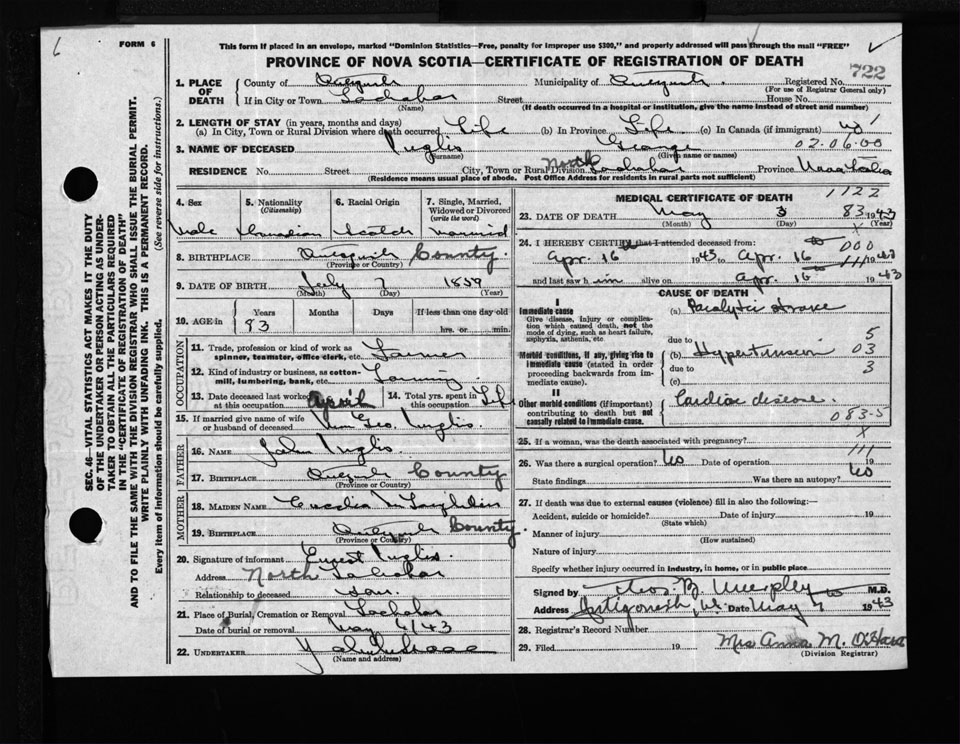 6
FORM 6
This form if placed in an envelope, marked "Dominion Statistics—Free, penalty for improper use $300," and properly addressed will pass through the mail "FREE"
PROVINCE OF NOVA SCOTIA—CERTIFICATE OF REGISTRATION OF DEATH
722
1. PLACE OF DEATH County of Antigonish Municipality of Antigonish Registered No.
(For use of Registrar General only)
If in City or Town Lochaber Street House No.
(Name) (If death occurred in a hospital or institution, give the name instead of street and number)
2. LENGTH OF STAY (in years, months and days)
(a) In City, Town or Rural Division where death occurred Life (b) In Province Life (c) In Canada (if immigrant)
3. NAME OF DECEASED Inglis George 02.06.00
(Surname) (Given name or names)
RESIDENCE No. Street City, Town or Rural Division North Lochaber Province Nova Scotia
(Residence means usual place of abode. Post Office Address for residents in rural parts not sufficient)
4. Sex 5. Nationality (Citizenship) 6. Racial Origin 7. Single, Married, Widowed or Divorced (write the word)
Male Canadian Scotch Married
8. BIRTHPLACE Antigonish County
(Province or Country)
9. DATE OF BIRTH July 7 1859
(Month) (Day) (Year)
10. AGE in Years Months Days If less than one day old
83 hrs. or min.
OCCUPATION
11. Trade, profession or kind of work as spinner, teamster, office clerk, etc. Farmer
12. Kind of industry or business, as cotton-mill, lumbering, bank, etc. Farming
13. Date deceased last worked at this occupation April 14. Total yrs. spent in this occupation Life
15. If married give name of wife or husband of deceased Mrs Geo. Inglis
FATHER
16. NAME John Inglis
17. BIRTHPLACE Antigonish County
(Province or Country)
MOTHER
18. MAIDEN NAME
19. BIRTHPLACE Antigonish County
(Province or Country)
20. Signature of informant Ernest Inglis
Address North Lochaber
Relationship to deceased Son
21. Place of Burial, Cremation or Removal Lochaber
Date of burial or removal May 4/43
22. UNDERTAKER
(Name and address)
MEDICAL CERTIFICATE OF DEATH 1122
23. DATE OF DEATH May 3 83 1943
(Month) (Day) (Year)
X
24. I HEREBY CERTIFY that I attended deceased from:
000
Apr. 16 1943 to Apr. 16 1943
111
and last saw him alive on Apr. 16 1943
CAUSE OF DEATH
I
Immediate cause
Give disease, injury or complication which caused death, not the mode of dying, such as heart failure, asphyxia, asthenia, etc.
(a) Paralytic stroke
due to 5
Morbid conditions, if any, giving rise to immediate cause (stated in order proceeding backwards from immediate cause).
(b) Hypertension 03
due to 3
(c)
II
Other morbid conditions (if important) contributing to death but not causally related to immediate cause.
Cardiac disease.
083-5
25. If a woman, was the death associated with pregnancy? X
111
26. Was there a surgical operation? No Date of operation 19
State findings Was there an autopsy? No
27. If death was due to external causes (violence) fill in also the following:—
Accident, suicide or homicide? Date of injury 19
(State which)
Manner of injury
(How sustained)
Nature of injury
Specify whether injury occurred in industry, in home, or in public place
Signed by Thos. B. Murphy M.D.
Address Antigonish, N.S. Date May 4 1943
28. Registrar's Record Number
29. Filed 19 Mrs Anna M. O'Hara
(Division Registrar)
SEC. 46—VITAL STATISTICS ACT MAKES IT THE DUTY
OF THE UNDERTAKER OR PERSON ACTING AS UNDER-
TAKER TO OBTAIN ALL THE PARTICULARS REQUIRED
IN THE "CERTIFICATE OF REGISTRATION OF DEATH"
AND TO FILE THE SAME WITH THE DIVISION REGISTRAR WHO SHALL ISSUE THE BURIAL PERMIT.
WRITE PLAINLY WITH UNFADING INK. THIS IS A PERMANENT RECORD.
Every item of information should be carefully supplied. (See reverse side for instructions.)